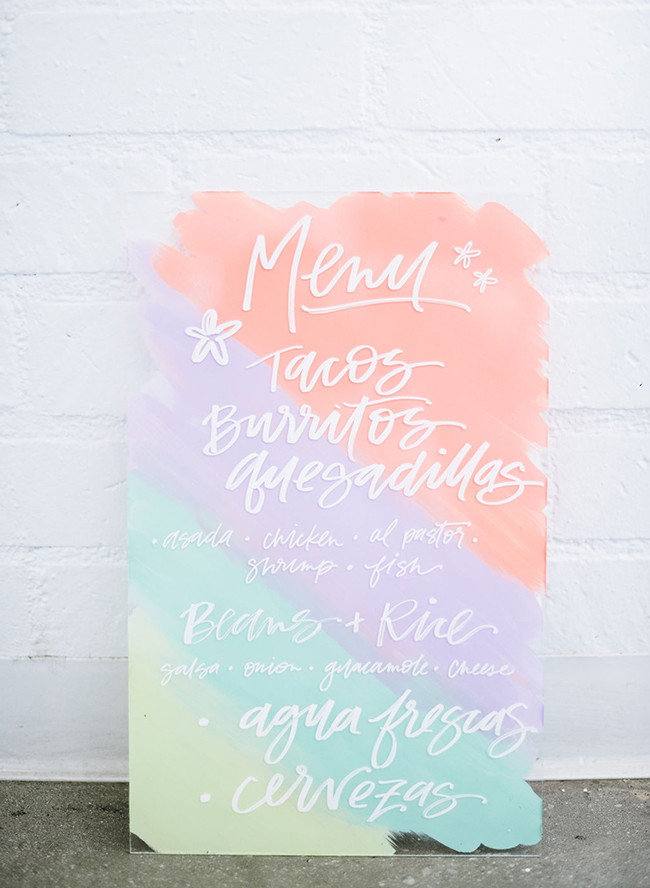 Menu
Tacos
Burritos
quesadillas
· asada · chicken · al pastor ·
shrimp · fish
Beans + Rice
salsa · onion · guacamole · cheese
· agua frescas
· cervezas